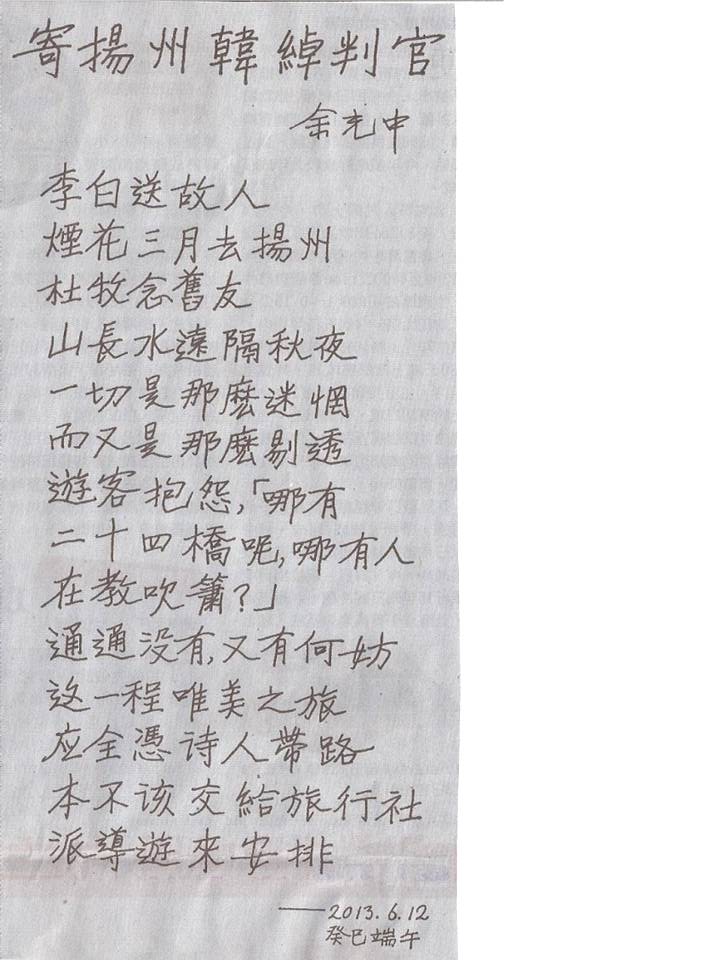 寄揚州韓綽判官
余光中
李白送故人
煙花三月去揚州
杜牧念舊友
山長水遠隔秋夜
一切是那麽迷惘
而又是那麽剔透
遊客抱怨,「哪有
二十四橋呢,哪有人
在教吹簫?」
通通没有,又有何妨
这一程唯美之旅
应全憑诗人帶路
本不该交給旅行社
派導遊來安排
——2013.6.12
癸巳端午